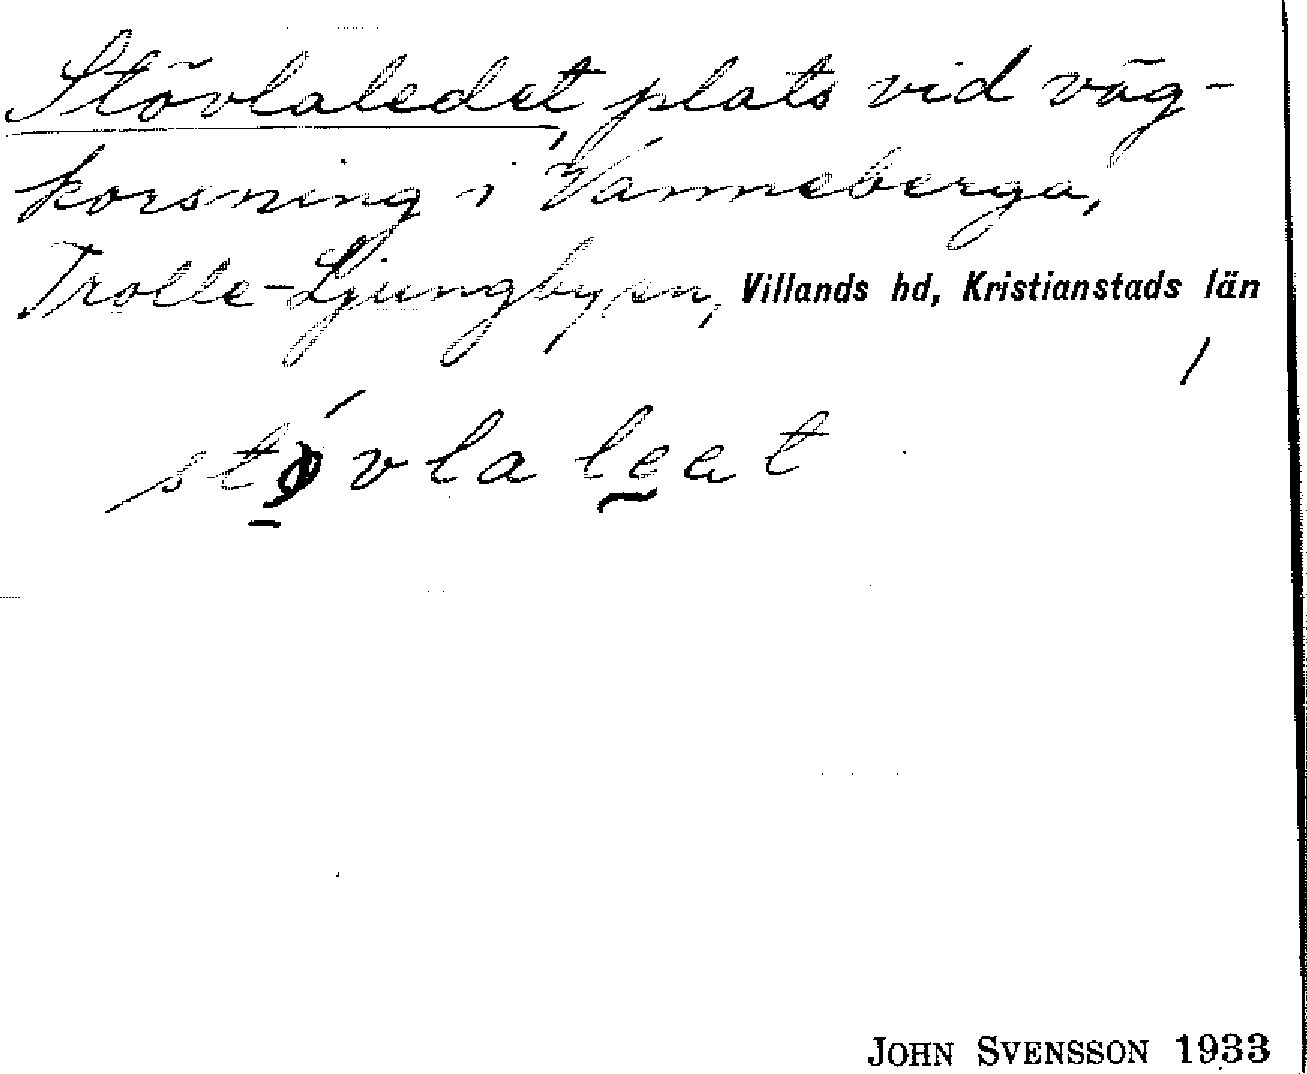 Stövlaledet, plats vid väg-
korsning i Vanneberga,
Trolle-Ljungby sn, Villands hd, Kristianstads län
stövlaleat
JOHN SVENSSON 1933